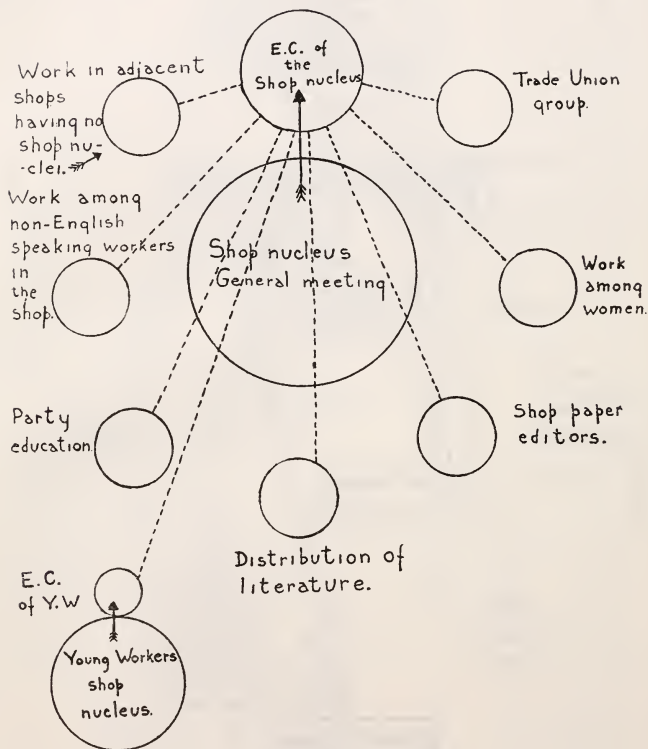 E.C. of
the
Shop nucleus
Work in adjacent
shops
having no
shop nu-
-clei.
Trade Union
group.
Work among
non-English
speaking workers
in
the
shop.
Shop nucleus
General meeting
Work
among
women.
Party
education
Shop paper
editors.
Distribution of
literature.
E.C.
of Y.W
Young Workers
shop
nucleus.